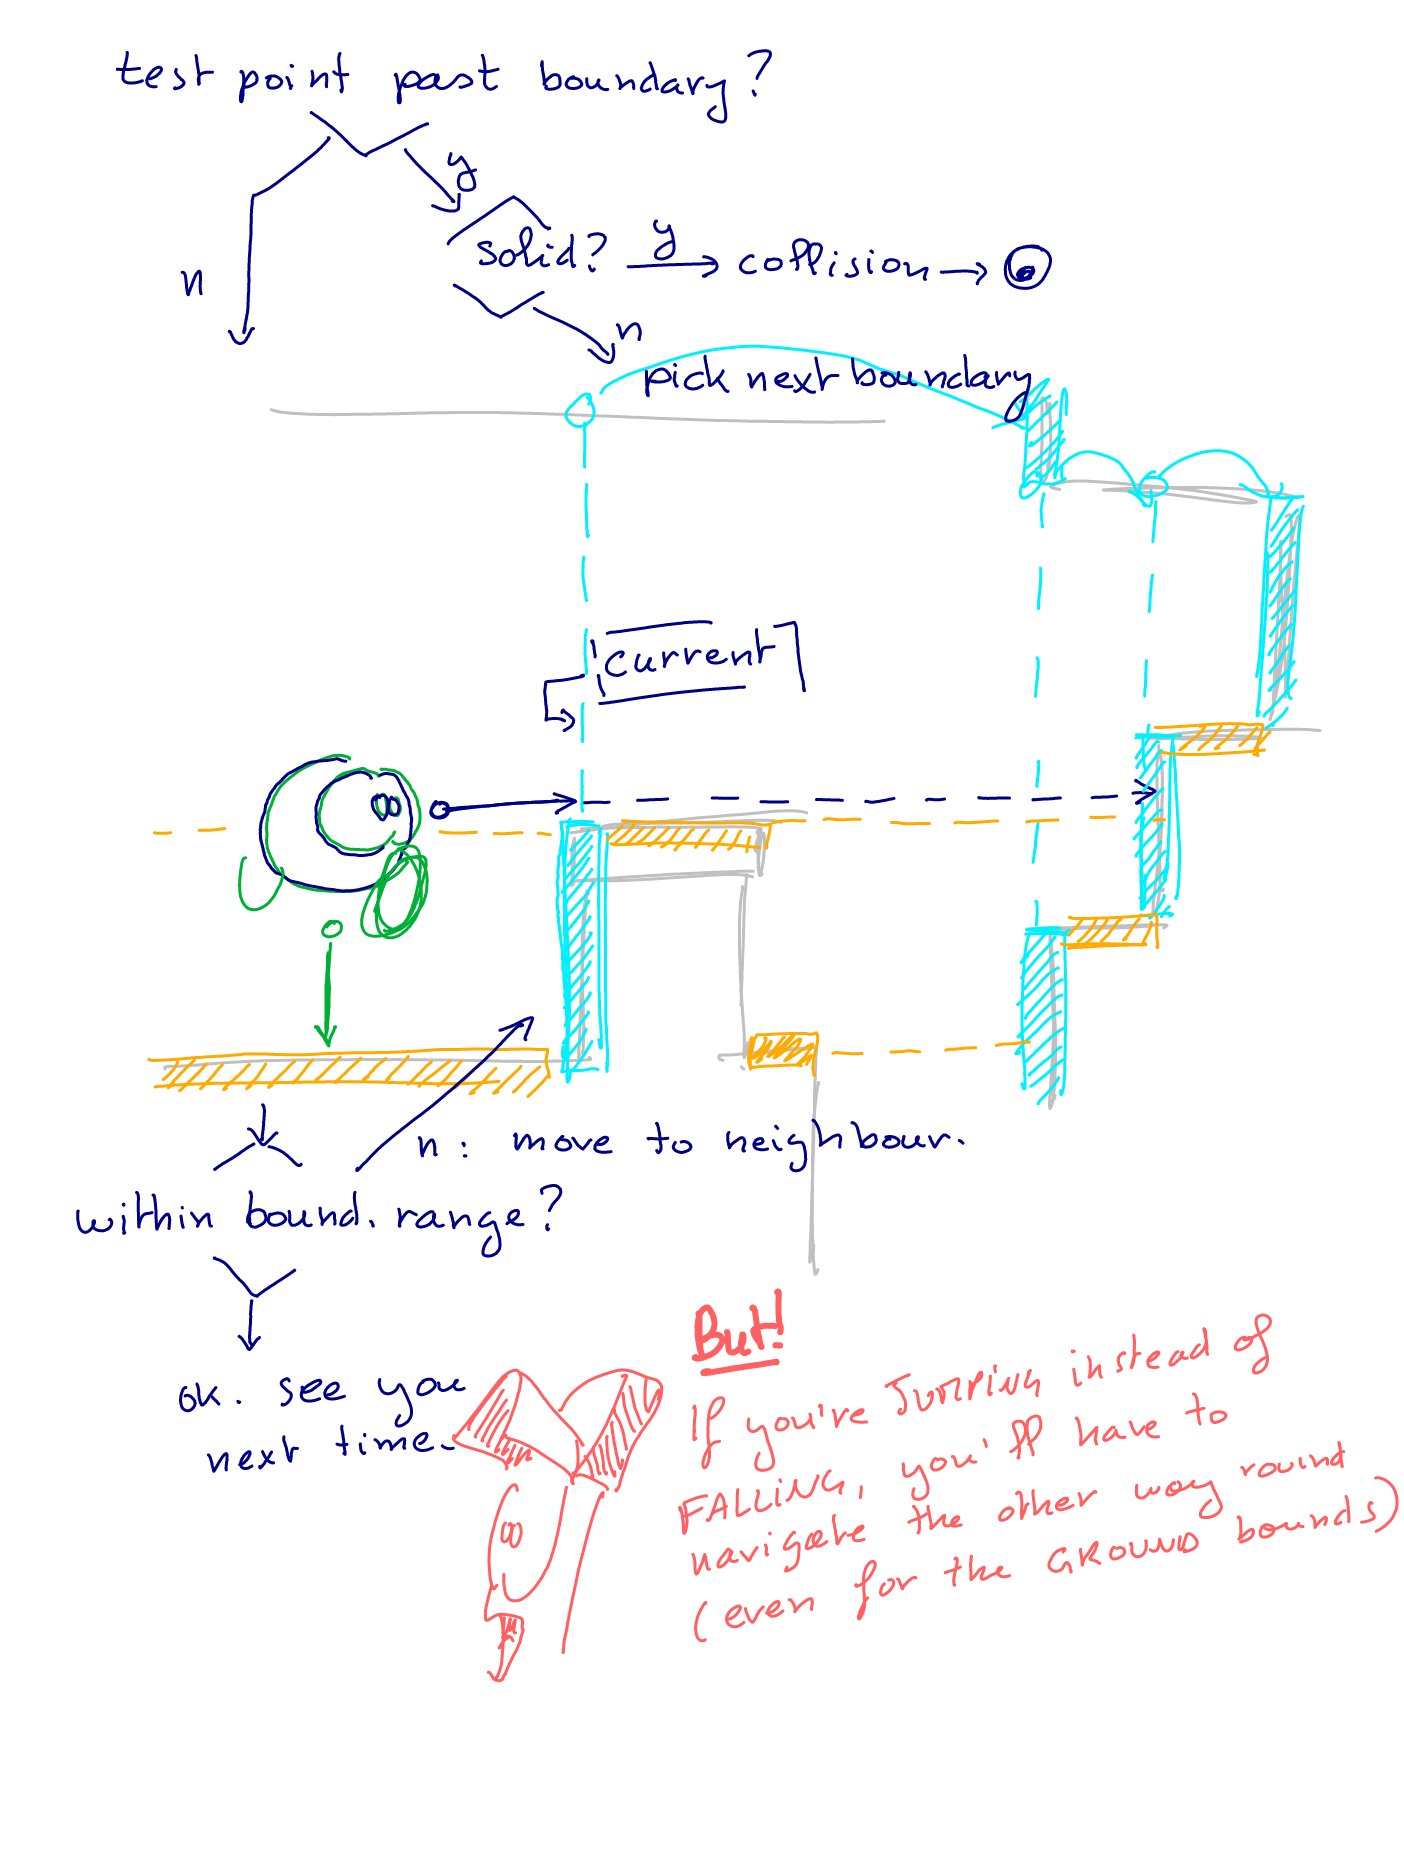 test point past boundary?
y
n
solid? y collision
n
pick next boundary
current
n: move to neighbour.
within bound. range?
ok. see you
next time.
But!
If you're JUMPING instead of
FALLING, you'll have to
navigate the other way round
(even for the GROUND bounds)